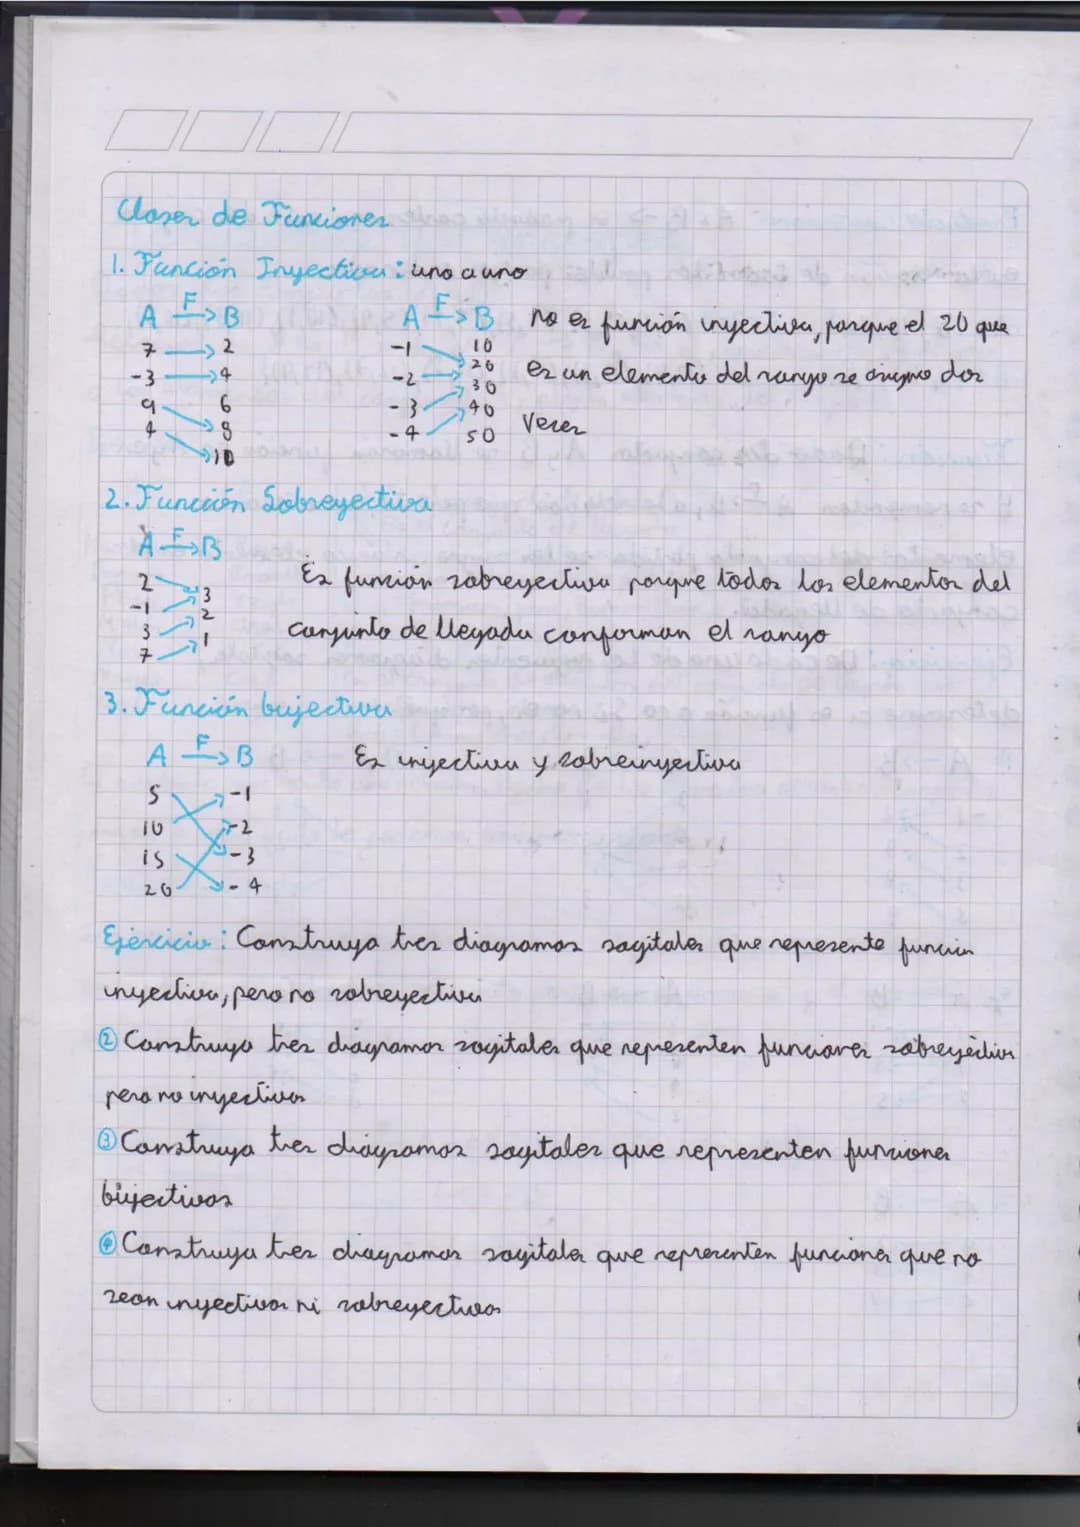 Clases de Funciones
1. Función Inyectiva: uno a uno
A F→ B
7 → 2
-3 → 4
9 6
4 8
10
A F→ B
-1 10
-2 20
-3 30
-4 40
50
no es función inyectiva, porque el 20 que
es un elemento del rango se asigno dos
veces
2. Función Sobreyectiva
A F→ B
2 3
-1 2
3 1
7
Es función sobreyectiva porque todos los elementos del
conjunto de llegada conforman el rango
3. Función biyectiva
A F→ B
5 -1
10 -2
15 -3
20 -4
Es inyectiva y sobreinyectiva
Ejercicio: Construya tres diagramas sagitales que represente función
inyectiva, pero no sobreyectiva
② Construya tres diagramas sagitales que representen funciones sobreyectivas
pero no inyectivas
③ Construya tres diagramas sagitales que representen funciones
biyectivas
④ Construya tres diagramas sagitales que representen funciones que no
sean inyectivas ni sobreyectivas